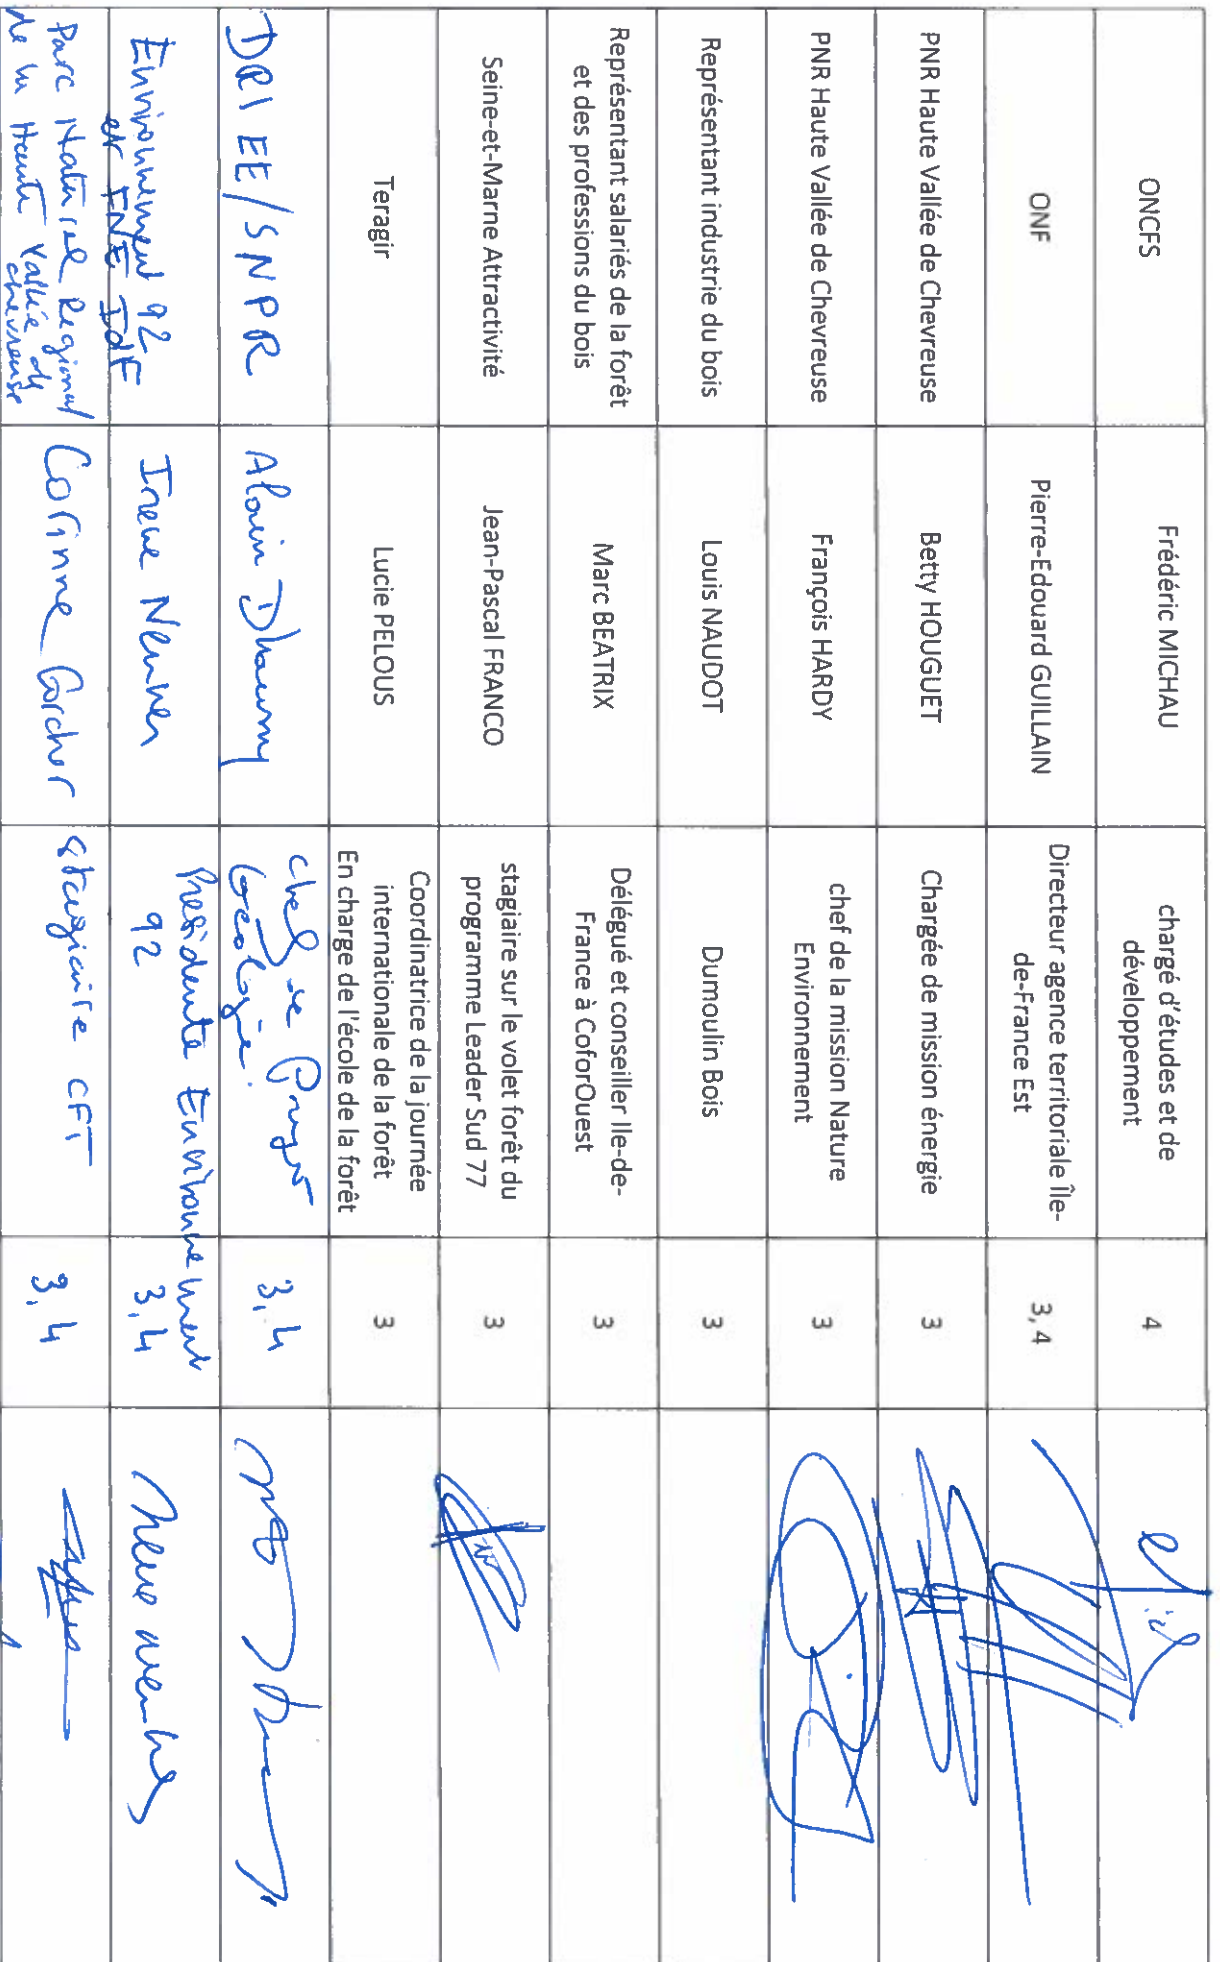 ONCFS
Frédéric MICHAU
chargé d'études et de
développement
4
ONF
Pierre-Edouard GUILLAIN
Directeur agence territoriale Île-
de-France Est
3, 4
PNR Haute Vallée de Chevreuse
Betty HOUGUET
Chargée de mission énergie
3
PNR Haute Vallée de Chevreuse
François HARDY
chef de la mission Nature
Environnement
3
Représentant industrie du bois
Louis NAUDOT
Dumoulin Bois
3
Représentant salariés de la forêt
et des professions du bois
Marc BEATRIX
Délégué et conseiller Ile-de-
France à CoforOuest
3
Seine-et-Marne Attractivité
Jean-Pascal FRANCO
stagiaire sur le volet forêt du
programme Leader Sud 77
3
Teragir
Lucie PELOUS
Coordinatrice de la journée
internationale de la forêt
En charge de l'école de la forêt
3
DRIEE/SNPR
Alain
chef de
3,4
Environnement 92
et FNE IdF
Irene
Présidente Environnement
92
3,4
Parc Naturel Régional
de la Haute Vallée de
chevreuse
Corinne
stagiaire CFT
3,4